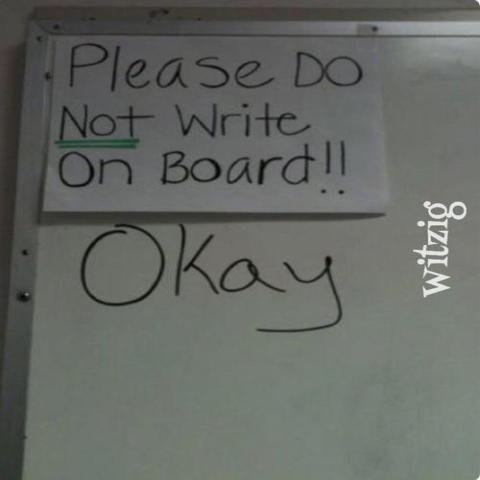 Please Do
Not Write
On Board!!
Okay
witzig